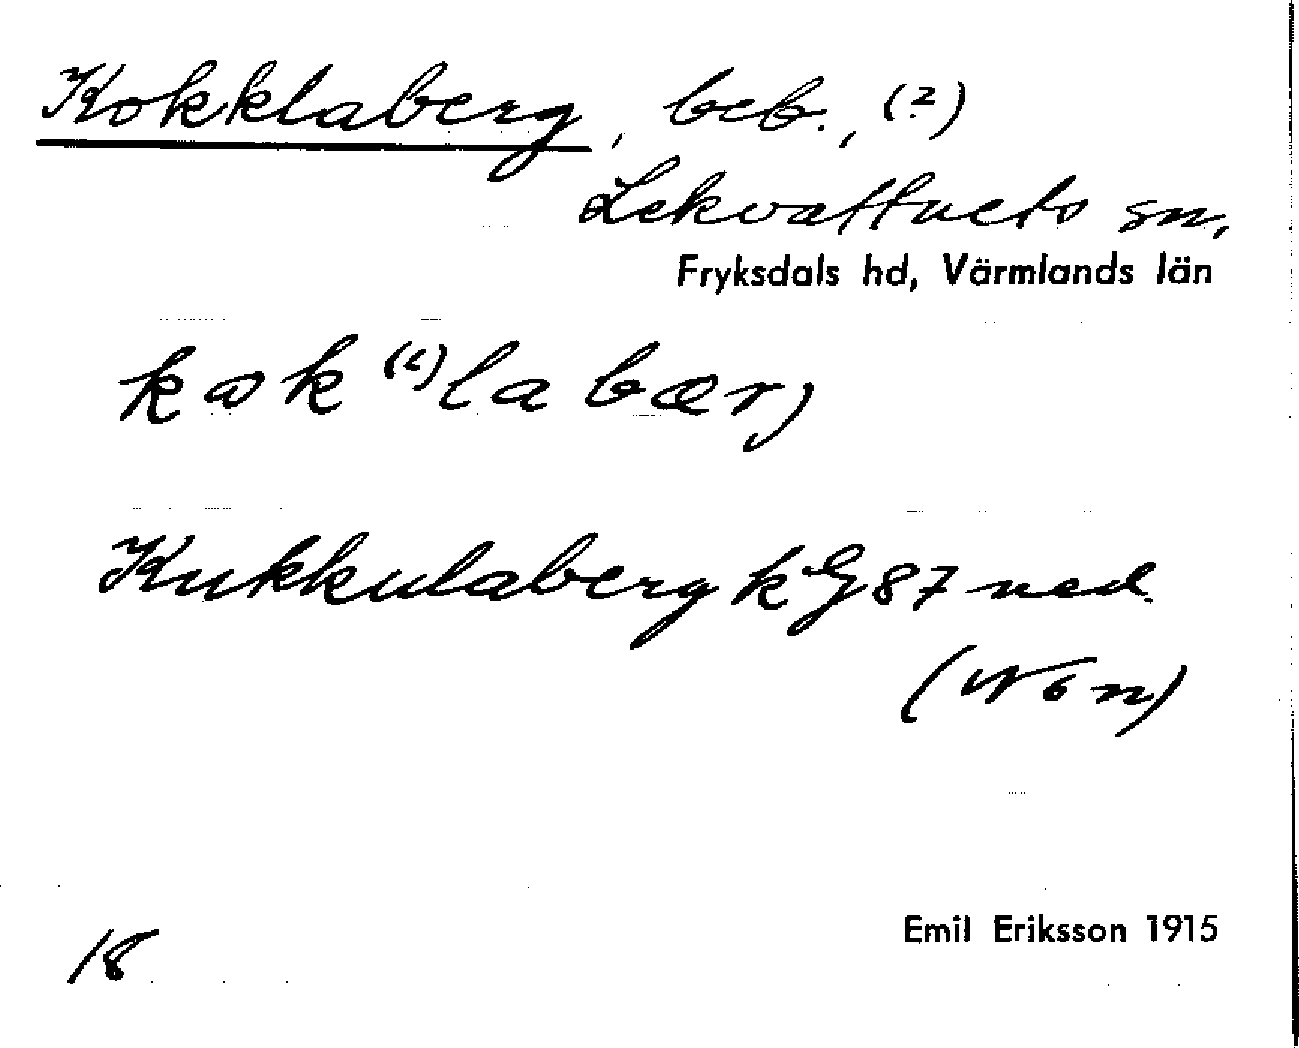 Kokklaberg, beb., (?)
Lekvattnets sn,
Fryksdals hd, Värmlands län
kωk⁽ᶥ⁾la bær,
Kukkulaberg kG87 ned.
(Nön)
18
Emil Eriksson 1915